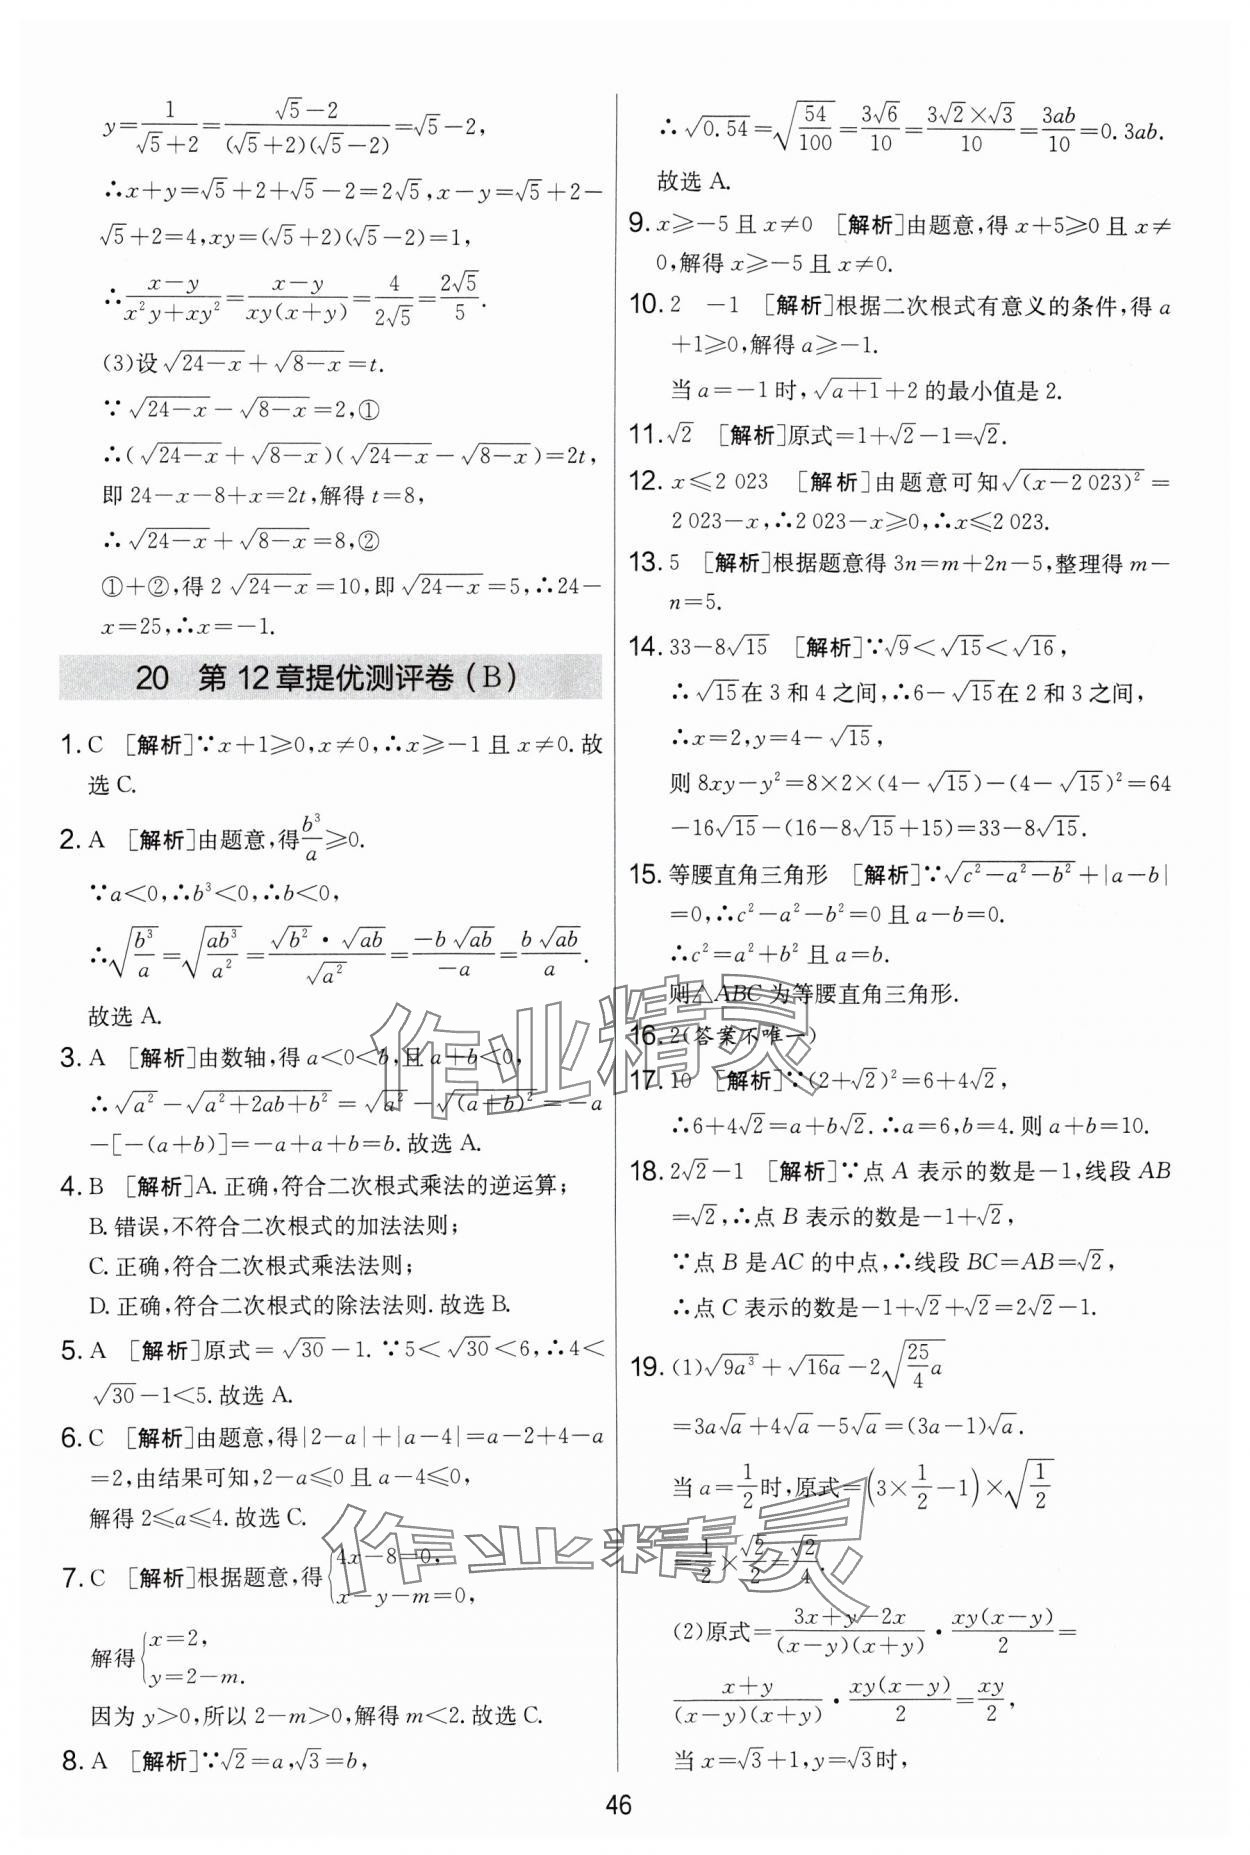 y=1/(√5+2)=(√5-2)/((√5+2)(√5-2))=√5-2,
∴x+y=√5+2+√5-2=2√5,x-y=√5+2-
√5+2=4,xy=(√5+2)(√5-2)=1,
∴(x-y)/(x²y+xy²)=(x-y)/(xy(x+y))=4/(2√5)=2√5/5.
(3)设√(24-x)+√(8-x)=t.
∵√(24-x)-√(8-x)=2,①
∴(√(24-x)+√(8-x))(√(24-x)-√(8-x))=2t,
即24-x-8+x=2t,解得t=8,
∴√(24-x)+√(8-x)=8,②
①+②,得2√(24-x)=10,即√(24-x)=5,∴24-
x=25,∴x=-1.
20 第12章提优测评卷(B)
1. C [解析]∵x+1≥0,x≠0,∴x≥-1且x≠0.故
选C.
2. A [解析]由题意,得b³/a≥0.
∵a<0,∴b³<0,∴b<0,
∴√(b³/a)=√(ab³/a²)=(√b²·√ab)/√a²=(-b√ab)/(-a)=(b√ab)/a.
故选A.
3. A [解析]由数轴,得a<0<b,且a+b<0,
∴√a²-√(a²+2ab+b²)=√a²-√(a+b)²=-a
-[-(a+b)]=-a+a+b=b.故选A.
4. B [解析]A.正确,符合二次根式乘法的逆运算;
B.错误,不符合二次根式的加法法则;
C.正确,符合二次根式乘法法则;
D.正确,符合二次根式的除法法则.故选B.
5. A [解析]原式=√30-1.∵5<√30<6,∴4<
√30-1<5.故选A.
6. C [解析]由题意,得|2-a|+|a-4|=a-2+4-a
=2,由结果可知,2-a≤0且a-4≤0,
解得2≤a≤4.故选C.
7. C [解析]根据题意,得{4x-8=0,
x-y-m=0,
解得{x=2,
y=2-m.
因为y>0,所以2-m>0,解得m<2.故选C.
8. A [解析]∵√2=a,√3=b,
∴√0.54=√(54/100)=3√6/10=(3√2×√3)/10=3ab/10=0.3ab.
故选A.
9. x≥-5且x≠0 [解析]由题意,得x+5≥0且x≠
0,解得x≥-5且x≠0.
10. 2 -1 [解析]根据二次根式有意义的条件,得a
+1≥0,解得a≥-1.
当a=-1时,√(a+1)+2的最小值是2.
11. √2 [解析]原式=1+√2-1=√2.
12. x≤2 023 [解析]由题意可知√(x-2 023)²=
2 023-x,∴2 023-x≥0,∴x≤2 023.
13. 5 [解析]根据题意得3n=m+2n-5,整理得m-
n=5.
14. 33-8√15 [解析]∵√9<√15<√16,
∴√15在3和4之间,∴6-√15在2和3之间,
∴x=2,y=4-√15,
则8xy-y²=8×2×(4-√15)-(4-√15)²=64
-16√15-(16-8√15+15)=33-8√15.
15. 等腰直角三角形 [解析]∵√(c²-a²-b²)+|a-b|
=0,∴c²-a²-b²=0且a-b=0.
∴c²=a²+b²且a=b.
则△ABC为等腰直角三角形.
16. 2(答案不唯一)
17. 10 [解析]∵(2+√2)²=6+4√2,
∴6+4√2=a+b√2.∴a=6,b=4.则a+b=10.
18. 2√2-1 [解析]∵点A表示的数是-1,线段AB
=√2,∴点B表示的数是-1+√2,
∵点B是AC的中点,∴线段BC=AB=√2,
∴点C表示的数是-1+√2+√2=2√2-1.
19. (1)√(9a³)+√(16a)-2√(25/4 a)
=3a√a+4√a-5√a=(3a-1)√a.
当a=1/2时,原式=(3×1/2-1)×√(1/2)
=1/2×√2/2=√2/4.
(2)原式=(3x+y-2x)/((x-y)(x+y))·(xy(x-y))/2=
(x+y)/((x-y)(x+y))·(xy(x-y))/2=xy/2,
当x=√3+1,y=√3时,
46
作业精灵
作业精灵